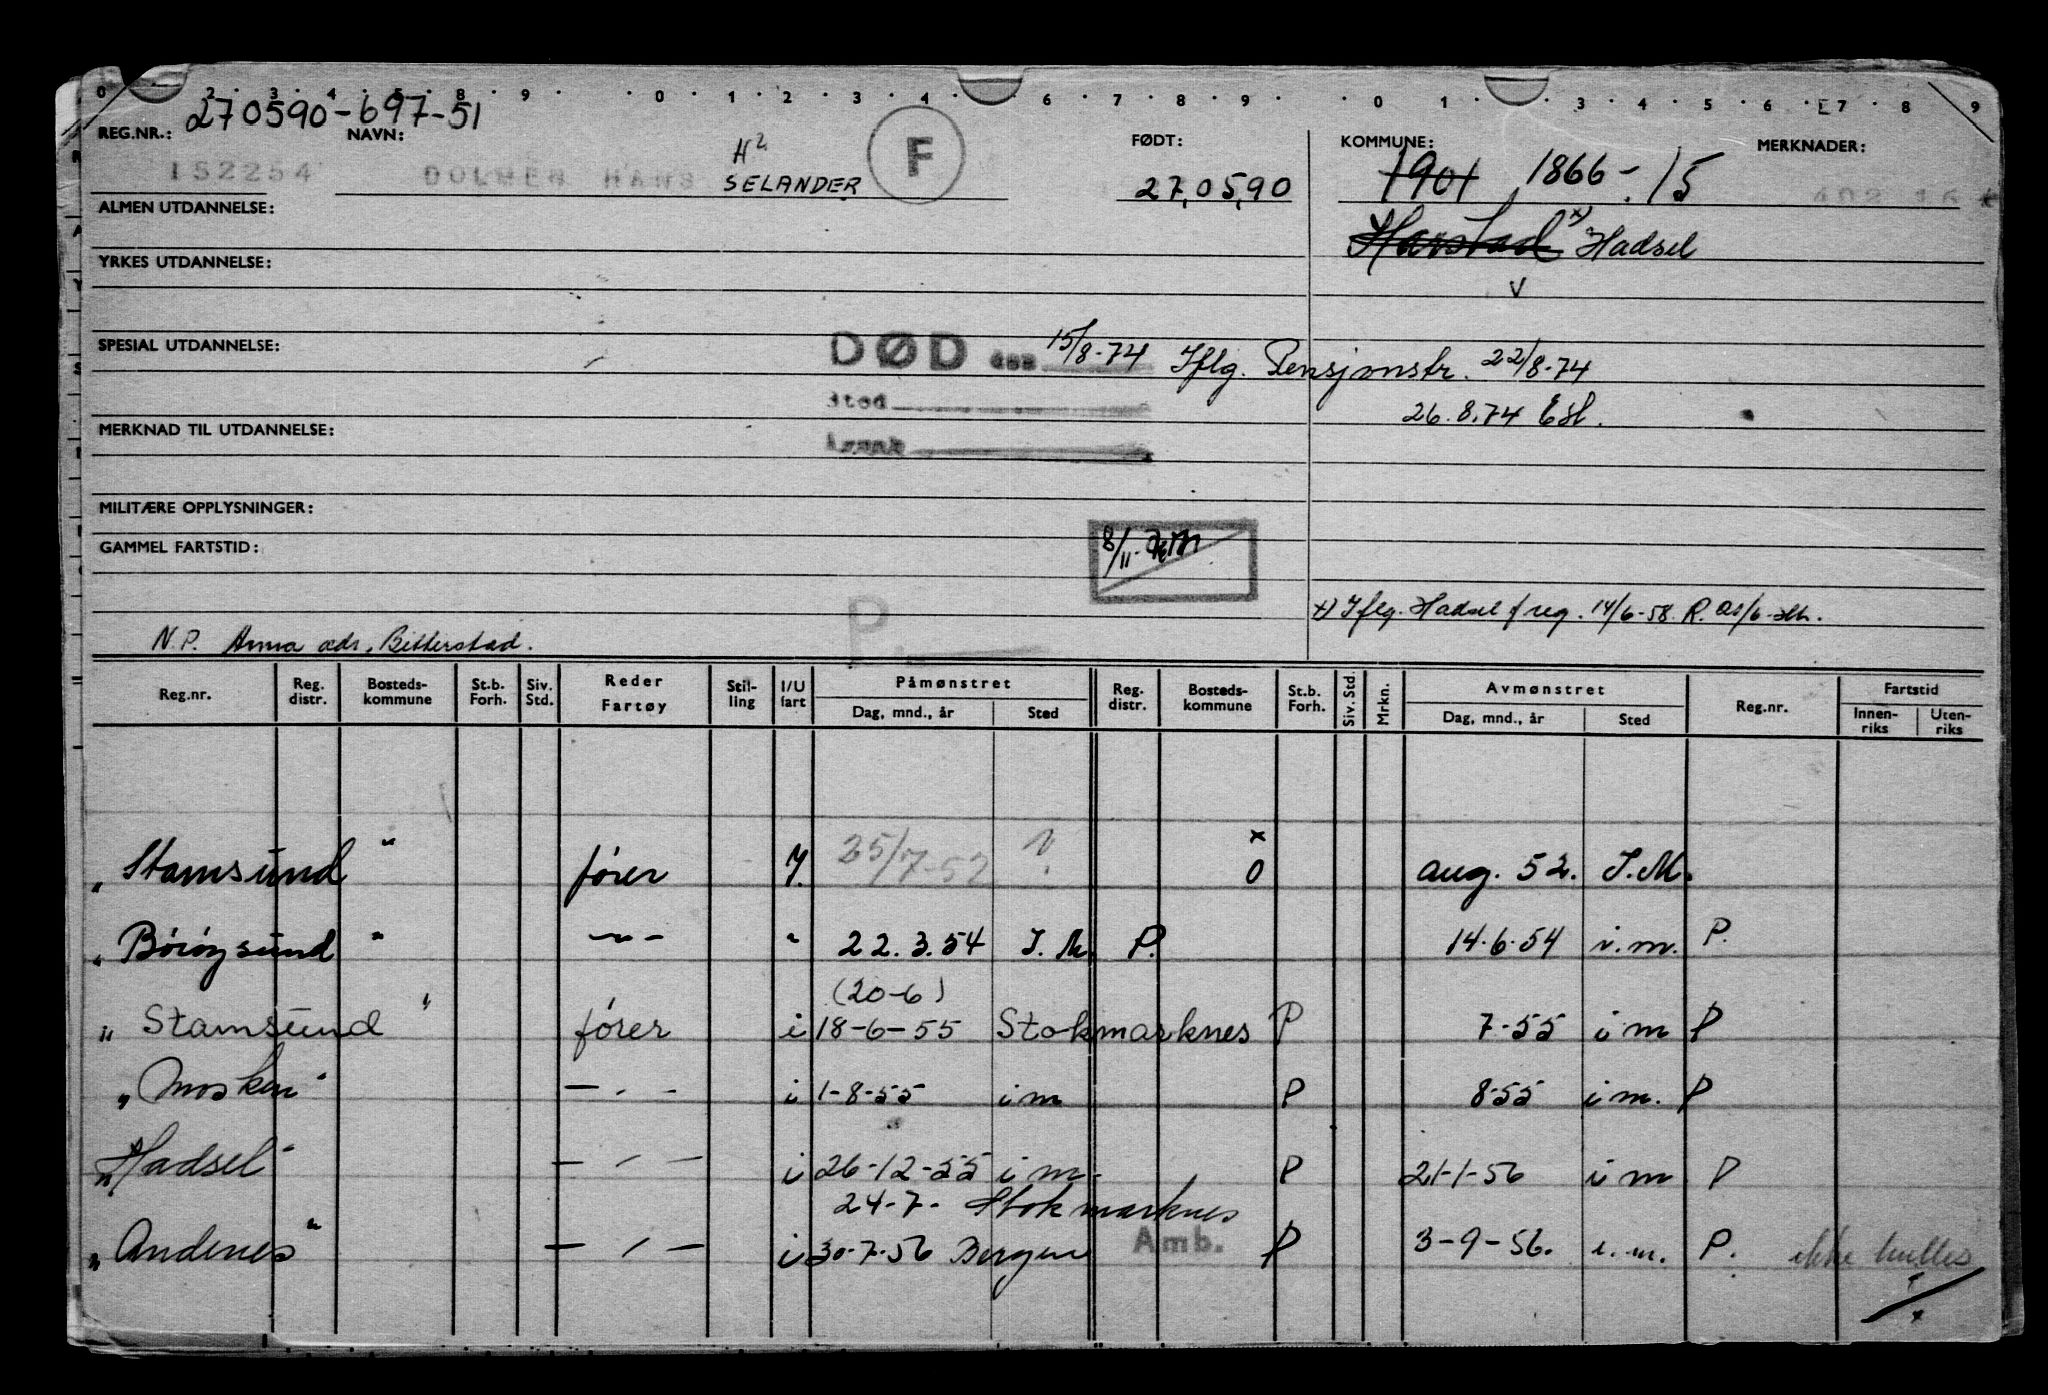 0 2 3 4 5 8 9 0 1 2 3 4 6 7 8 9 0 1 3 4 5 6 7 8 9
270590-697-51
REG.NR.: NAVN: H2 F FØDT: KOMMUNE: MERKNADER:
152254 DOLMEN HANS SELANDER 27,05,90 1901 1866-15 402 16
ALMEN UTDANNELSE: Harstad x) Hadsel
YRKES UTDANNELSE:
V
SPESIAL UTDANNELSE: DØD den 15/8-74 Iflg. Pensjonstr. 22/8-74
Sted 26.8.74
MERKNAD TIL UTDANNELSE:
MILITÆRE OPPLYSNINGER:
GAMMEL FARTSTID: 8/11
P.
x) Iflg. Hadsel f reg. 14/6-58. R.
N.P. Anna adr, Bitterstad.
Reg.nr. Reg. distr. Bosteds- kommune St.b. Forh. Siv. Std. Reder Fartøy Stil- ling I/U fart Påmønstret Reg. distr. Bosteds- kommune St.b. Forh. Siv. Std. Mrkn. Avmønstret Reg.nr. Fartstid
Dag, mnd., år Sted Dag, mnd., år Sted Innen- riks Uten- riks
x
„Stamsund" fører I. 25/7-52 0 aug. 52. I.M.
„Børøysund" -"- " 22.3.54 I.M. P. 14.6.54 i.m. P.
(20-6)
„Stamsund" fører i 18-6-55 Stokmarknes P 7-55 i m P
„Mosken" -"- i 1-8-55 i m P 8-55 i m. P
„Hadsel" -"- i 26-12-55 i m. P 21-1-56 i m P
24-7- Stokmarknes
„Andenes" -"- i 30-7-56 Bergen Amb. P 3-9-56. i.m. P. ikke hulles